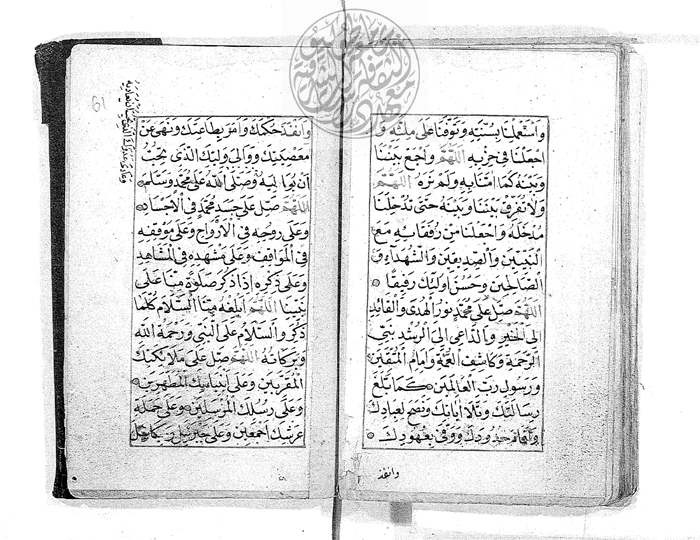 وَاسْتَعْمِلْنَا بِسُنَّتِهِ وَتَوَفَّنَا عَلَى مِلَّتِهِ وَ
اجْعَلْنَا فِي حِزْبِهِ اللَّهُمَّ وَاجْمَعْ بَيْنَنَا
وَبَيْنَهُ كَمَا آمَنَّا بِهِ وَلَمْ نَرَهُ اللَّهُمَّ
وَلَا تُفَرِّقْ بَيْنَنَا وَبَيْنَهُ حَتَّى تُدْخِلَنَا
مُدْخَلَهُ وَاجْعَلْنَا مِنْ رُفَقَائِهِ مَعَ
النَّبِيِّينَ وَالصِّدِّيقِينَ وَالشُّهَدَاءِ وَ
الصَّالِحِينَ وَحَسُنَ أُولَئِكَ رَفِيقًا
اللَّهُمَّ صَلِّ عَلَى مُحَمَّدٍ نُورِ الْهُدَى وَالْقَائِدِ
إِلَى الْخَيْرِ وَالدَّاعِي إِلَى الرُّشْدِ نَبِيِّ
الرَّحْمَةِ وَكَاشِفِ الْغُمَّةِ وَإِمَامِ الْمُتَّقِينَ
وَرَسُولِ رَبِّ الْعَالَمِينَ كَمَا بَلَّغَ
رِسَالَتَكَ وَتَلَا آيَاتِكَ وَنَصَحَ لِعِبَادِكَ
وَأَقَامَ حُدُودَكَ وَوَفَّى بِعُهُودِكَ
وانفذ
وَأَنْفَذَ حُكْمَكَ وَأَمَرَ بِطَاعَتِكَ وَنَهَى عَنْ
مَعْصِيَتِكَ وَوَالَى وَلِيَّكَ الَّذِي يُحِبُّ
أَنْ يُوَالِيَهُ وَصَلَّى اللَّهُ عَلَى مُحَمَّدٍ وَسَلَّمَ
اللَّهُمَّ صَلِّ عَلَى جَسَدِ مُحَمَّدٍ فِي الْأَجْسَادِ
وَعَلَى رُوحِهِ فِي الْأَرْوَاحِ وَعَلَى مَوْقِفِهِ
فِي الْمَوَاقِفِ وَعَلَى مَشْهَدِهِ فِي الْمَشَاهِدِ
وَعَلَى ذِكْرِهِ إِذَا ذُكِرَ صَلَوةً مِنَّا عَلَى
نَبِيِّنَا اللَّهُمَّ أَبْلِغْهُ مِنَّا السَّلَامَ كُلَّمَا
ذُكِرَ وَالسَّلَامُ عَلَى النَّبِيِّ وَرَحْمَةُ اللَّهِ
وَبَرَكَاتُهُ اللَّهُمَّ صَلِّ عَلَى مَلَائِكَتِكَ
الْمُقَرَّبِينَ وَعَلَى أَنْبِيَائِكَ الْمُطَهَّرِينَ
وَعَلَى رُسُلِكَ الْمُرْسَلِينَ وَعَلَى حَمَلَةِ
عَرْشِكَ أَجْمَعِينَ وَعَلَى جِبْرِيلَ وَمِيكَائِيلَ